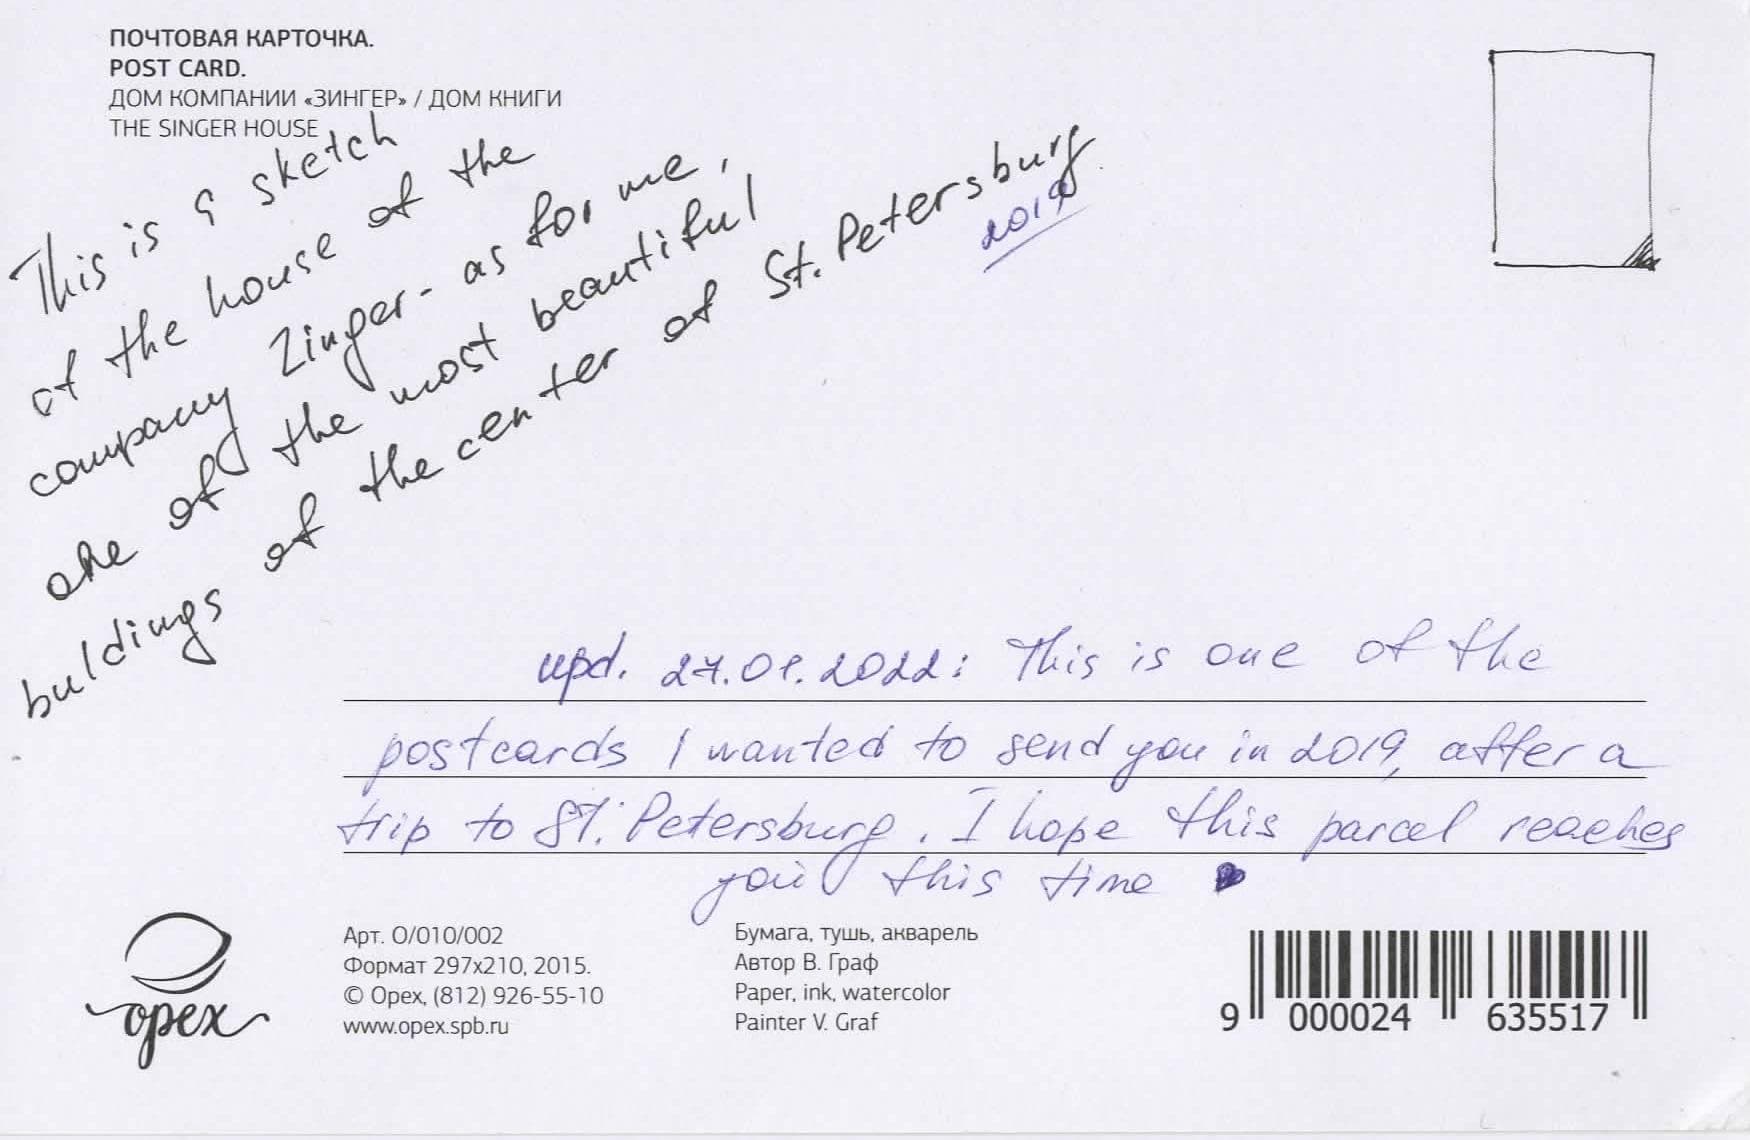 ПОЧТОВАЯ КАРТОЧКА.
POST CARD.
ДОМ КОМПАНИИ «ЗИНГЕР» / ДОМ КНИГИ
THE SINGER HOUSE
This is a sketch
of the house of the
company Zinger - as for me,
one of the most beautiful
buldings of the center of St. Petersburg
2019
upd. 27.01.2022: This is one of the
postcards I wanted to send you in 2019, after a
trip to St. Petersburg. I hope this parcel reaches
you this time
орех
Арт. О/010/002
Формат 297x210, 2015.
© Орех, (812) 926-55-10
www.opex.spb.ru
Бумага, тушь, акварель
Автор В. Граф
Paper, ink, watercolor
Painter V. Graf
9 000024 635517